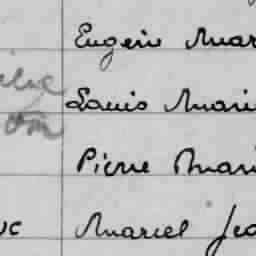 Eugène Mar
Louis Mari
Pierre Mari
uc Marcel Jea